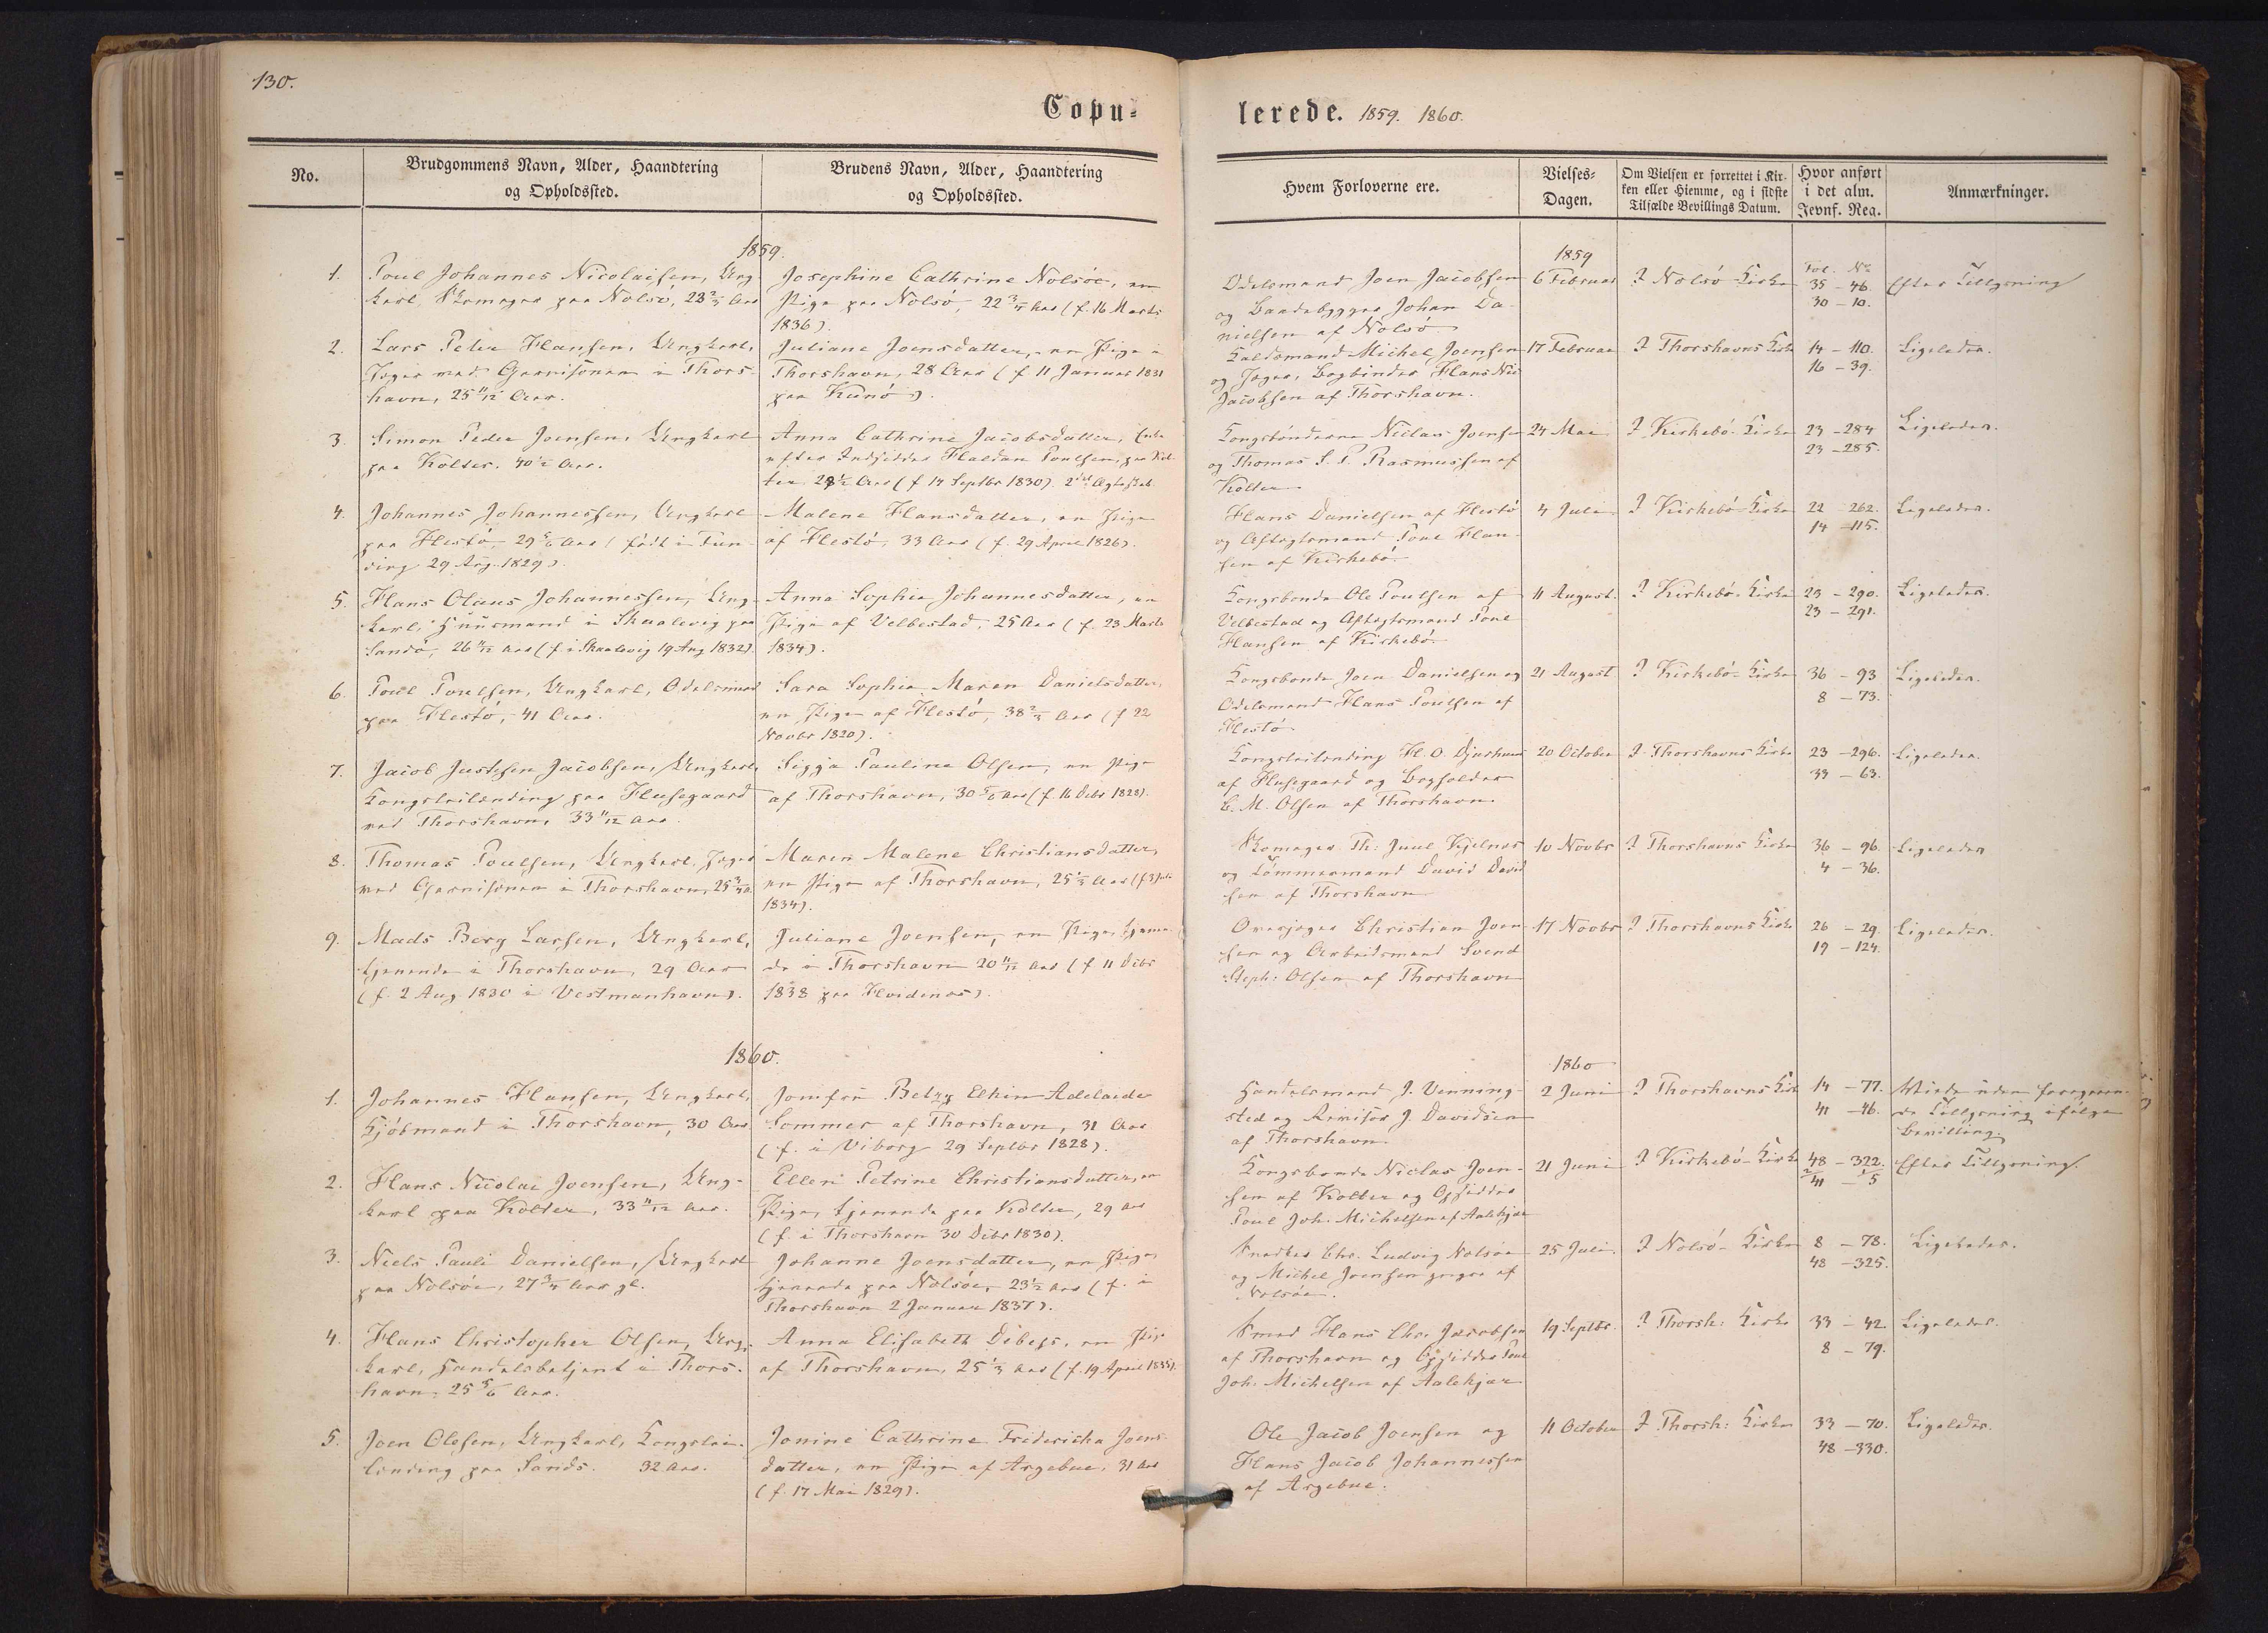 130.
Copu-
lerede. 1859. 1860.
No.
Brudgommens Navn, Alder, Haandtering
og Opholdssted.
Brudens Navn, Alder, Haandtering
og Opholdssted.
Hvem Forloverne ere.
Vielses-
Dagen.
Om Vielsen er forrettet i Kir-
ken eller Hiemme, og i sidste
Tilfælde Bevillings Datum.
Hvor anført
i det alm.
Jevnf. Reg.
Anmærkninger.
1859.
1859
1.
Poul Johannes Nicolaisen, Ung-
karl, Skomager paa Nolsö, 23 2/3 Aar
Josephine Cathrine Nolsöe, en
Pige paa Nolsö, 22 3/4 Aar (f. 16 Marts
1836).
Odelsmand Joen Jacobsen
og Baadebygger Johan Da-
nielsen af Nolsö
6 Februar
I Nolsö Kirke
Fol. No
35 - 46.
30 - 10.
Efter Tillysning
2.
Lars Peter Hansen, Ungkarl,
Jæger ved Garnisonen i Thors-
havn, 25 11/12 Aar.
Juliane Joensdatter, en Pige i
Thorshavn, 28 Aar (f. 11 Januar 1831
paa Kunö).
Michel Joensen
og Jæger, Bogbinder Hans Nic
Jacobsen af Thorshavn.
17 Februar
I Thorshavns Kirke
14 - 110.
16 - 39.
Ligeledes.
3.
Simon Peder Joensen, Ungkarl
paa Kolter. 40 1/2 Aar.
Anna Cathrine Jacobsdatter, Enke
efter Indsidder Haldan Poulsen, paa Kol-
ter 28 1/2 Aar (f 14 Septbr 1830). 2det Ægteskab
Kongsbönderne Niclas Joensen
og Thomas S. P. Rasmussen af
Kolter
24 Mai
I Kirkebö Kirke
23 - 284
23 - 285.
Ligeledes.
4.
Johannes Johannessen, Ungkarl
paa Hestö, 29 5/6 Aar (födt i Fun-
ding 29 Aug. 1829).
Malene Hansdatter, en Pige
af Hestö, 33 Aar (f. 29 April 1826).
Hans Danielsen af Hestö
og Aftægtsmand Poul Han-
sen af Kirkebö.
4 Juli
I Kirkebö Kirke
22 262.
14 - 115.
Ligeledes.
5.
Hans Olaus Johannessen, Ung-
karl, Huusmand i Skaalevig paa
Sandö, 26 11/12 Aar (f. i Skaalevig 19 Aug 1832).
Anna Sophie Johannesdatter, en
Pige af Velbestad, 25 Aar (f. 23 Marts
1834).
Kongsbonde Ole Poulsen af
Velbestad og Aftægtsmand Poul
Hansen af Kirkebö
11 August.
I Kirkebö Kirke
23 - 290.
23 - 291.
Ligeledes.
6.
Poul Poulsen, Ungkarl, Odelsmand
paa Hestö, 41 Aar.
Sara Sophie Maren Danielsdatter,
en Pige af Hestö, 38 2/3 Aar (f 22
Novbr 1820).
Kongsbonde Joen Danielsen og
Odelsmand Hans Poulsen af
Hestö
21 August
I Kirkebö Kirke
36 - 93
8 - 73.
Ligeledes.
7.
Jacob Justesen Jacobsen, Ungkarl,
Kongsleilænding paa Husegaard
ved Thorshavn, 33 11/12 Aar.
Sigga Pauline Olsen, en Pige
af Thorshavn, 30 5/6 Aar (f. 16 Debr 1828).
Kongsleilænding H. O. Djurhuus
af Husegaard og Bogholder
E. M. Olsen af Thorshavn.
20 October
I Thorshavns Kirke
23 - 296.
33 - 63.
Ligeledes.
8.
Thomas Poulsen, Ungkarl, Jæger
ved Garnisonen i Thorshavn, 25 3/4 A.
Maren Malene Christiansdatter,
en Pige af Thorshavn, 25 1/3 Aar (f 3 Juli
1834).
Skomager Th: Juul Kjelnæs
og Tömmermand David David
sen af Thorshavn
10 Novbr
I Thorshavns Kirke
36 - 96.
4 - 36.
Ligeledes
9.
Mads Berg Larsen, Ungkarl,
tjenende i Thorshavn, 29 Aar
(f. 2 Aug 1830 i Vestmanhavn).
Juliane Joensen, en Pige, tjenen-
de i Thorshavn 20 11/12 Aar (f 11 Debr
1838 paa Hvidenæs).
Overjæger Christian Joen-
sen og Arbeidsmand Svend
Steph: Olsen af Thorshavn
17 Novbr
I Thorshavns Kirke
26 - 29.
19 - 124.
Ligeledes.
1860.
1860
1.
Johannes Hansen, Ungkarl,
Kjöbmand i Thorshavn, 30 Aar
Jomfru Betzy Elkin Adelaide
Sommer af Thorshavn, 31 Aar
(f. i Viborg 29 Septbr 1828).
Handelsmand J. Venning-
sted og Revisor J. Davidsen
af Thorshavn
2 Juni
I Thorshavns Kirk
14 - 77.
41 - 46.
Viede uden foregaaen-
de Tillysning ifölge
Bevilling.
2.
Hans Nicolai Joensen, Ung-
karl paa Kolter, 33 11/12 Aar.
Ellen Petrine Christiansdatter, en
Pige, tjenende paa Kolter, 29 Aar
(f. i Thorshavn 30 Debr 1830).
Kongsbonde Niclas Joen-
sen af Kolter og Opsidder
Poul Joh. Michelsen af Aalekjær
21 Juni
I Kirkebö Kirke
48 - 322.
41 - 5
Efter Tillysning.
3.
Niels Pauli Danielsen, Ungkarl
paa Nolsöe, 27 3/4 Aar gl.
Johanne Joensdatter, en Pige
tjenende paa Nolsöe, 23 1/2 Aar (f. i
Thorshavn 2 Januar 1837).
Snedker Chr. Ludvig Nolsöe
og Michel Joensen yngre af
Nolsöe.
25 Juli.
I Nolsö Kirke
8 - 78.
48 - 325.
Ligeledes.
4.
Hans Christopher Olsen, Ung-
karl, Handelsbetjent i Thors-
havn. 25 5/6 Aar.
Anna Elisabeth Debess, en Pige
af Thorshavn, 25 1/3 Aar (f. 19 April 1835).
Smed Hans Chr. Jacobsen
af Thorshavn og Opsidder Poul
Joh. Michelsen af Aalekjær
19 Septbr.
I Thorsh: Kirke
33 - 42.
8 - 79.
Ligeledes.
5.
Joen Olesen, Ungkarl, Kongslei-
lænding paa Sands. 32 Aar.
Jonine Cathrine Fridericha Joens-
datter, en Pige af Argeboe, 31 Aar
(f. 17 Mai 1829).
Ole Jacob Joensen og
Hans Jacob Johannessen
af Argeboe.
11 October
I Thorsh: Kirke
33 - 70.
48 - 330.
Ligeledes.